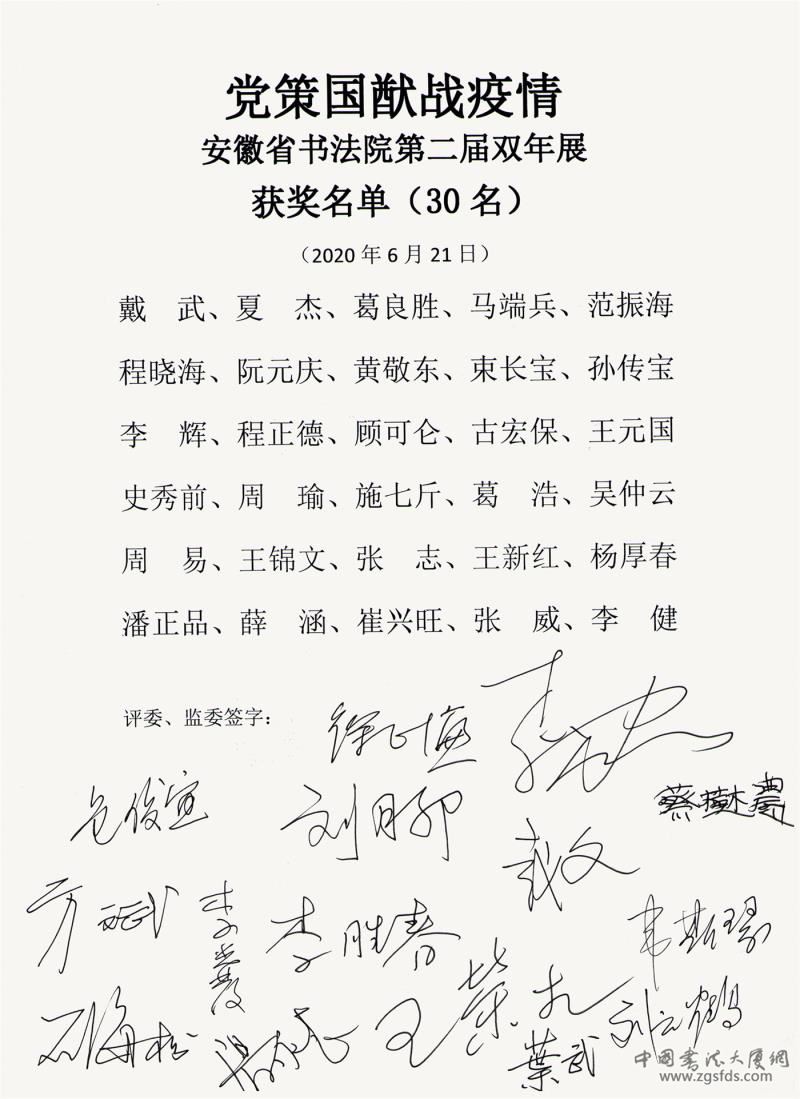 党策国猷战疫情
安徽省书法院第二届双年展
获奖名单（30 名）
（2020 年 6 月 21 日）
戴　武、夏　杰、葛良胜、马端兵、范振海
程晓海、阮元庆、黄敬东、束长宝、孙传宝
李　辉、程正德、顾可仑、古宏保、王元国
史秀前、周　瑜、施七斤、葛　浩、吴仲云
周　易、王锦文、张　志、王新红、杨厚春
潘正品、薛　涵、崔兴旺、张　威、李　健
评委、监委签字：
刘月卯
蔡樹農
方斌
李胜春
韦斯琴
葉武
刘云鹤
中国书法大厦网
www.zgsfds.com